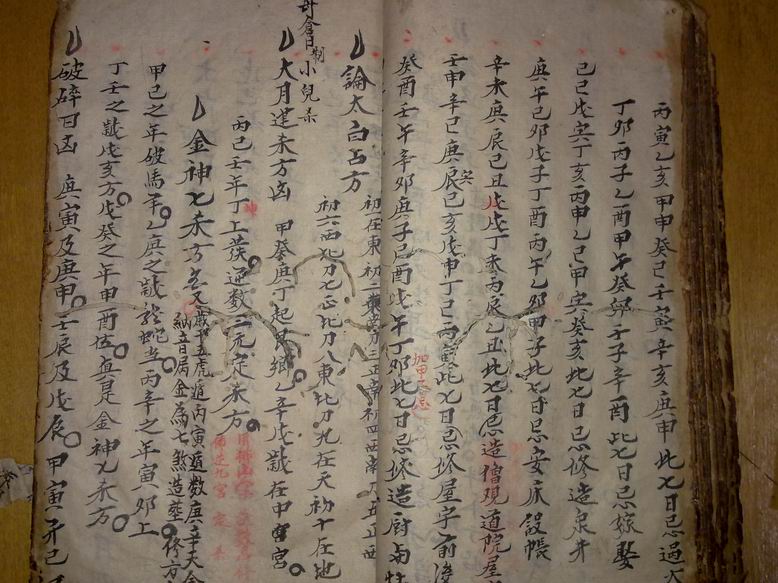 丙寅乙亥甲申癸巳壬寅辛亥庚申此七日忌過
丁卯丙子乙酉甲午癸卯壬子辛酉此七日忌嫁娶
己巳戊寅丁亥丙申乙巳甲寅癸亥此七日忌修造泉井
庚午己卯戊子丁酉丙午乙卯甲子此七日忌安床設帳
辛未庚辰己丑戊戌丁未丙辰乙丑此七日忌造僧觀道院屋
壬申辛巳庚寅己亥戊申丁巳丙寅此七日忌修屋宇前後
癸酉壬午辛卯庚子己酉戊午丁卯此七日忌修造廚
論太白占方
初一在東初二東南方三正南初四西南方五正西
初六西北方七正北方八東北方九在天初十在地
小兒杀
大月建杀方凶 甲癸庚丁起艮鄉乙辛戊歲在中宮
丙己壬年丁上發逆數三元定杀方
金神七杀方
歲干五虎遁丙寅遁數庚辛天金
納音屬金為七煞造葬修方
甲己之年破馬羊乙庚之歲龍蛇当丙辛之年寅卯上
丁壬之歲戌亥方戊癸之年申酉伍真是金神七杀方
破碎日凶 庚寅及庚申壬辰及戊辰甲寅并己